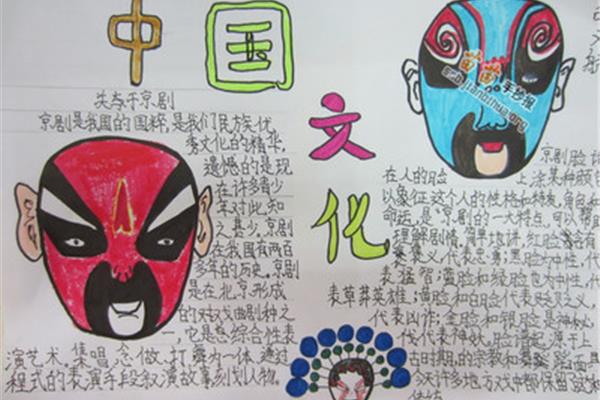 中国
文化
关于京剧
京剧是我国的国粹,是我们民族优
秀文化的精华,
遗憾的是现
在许多青少
年对此知
之甚少,京剧
在我国有两百
多年的历史,京剧
是在北京形成
的的戏曲剧种之
一,它是总综合性表
演艺术。集唱、念、做、打、舞为一体,通过
程式的表演手段叙演故事刻划人物。
苗苗手抄报
京剧脸
在人的脸上,涂某种颜色
以象征这个人的性格和特质,角色和
命运,是京剧的一大特点,可以帮助
理解剧情,简单地讲,红脸含有
褒义,代表忠勇;黑脸为中性,代
表猛智;蓝脸和绿脸也为中性,代
表草莽英雄;黄脸和白脸代表贬义,
代表凶诈;金脸和银脸是神秘,
代表神妖,脸谱起源于上
古时期的宗教和
今天许多地方戏中都保留
传统